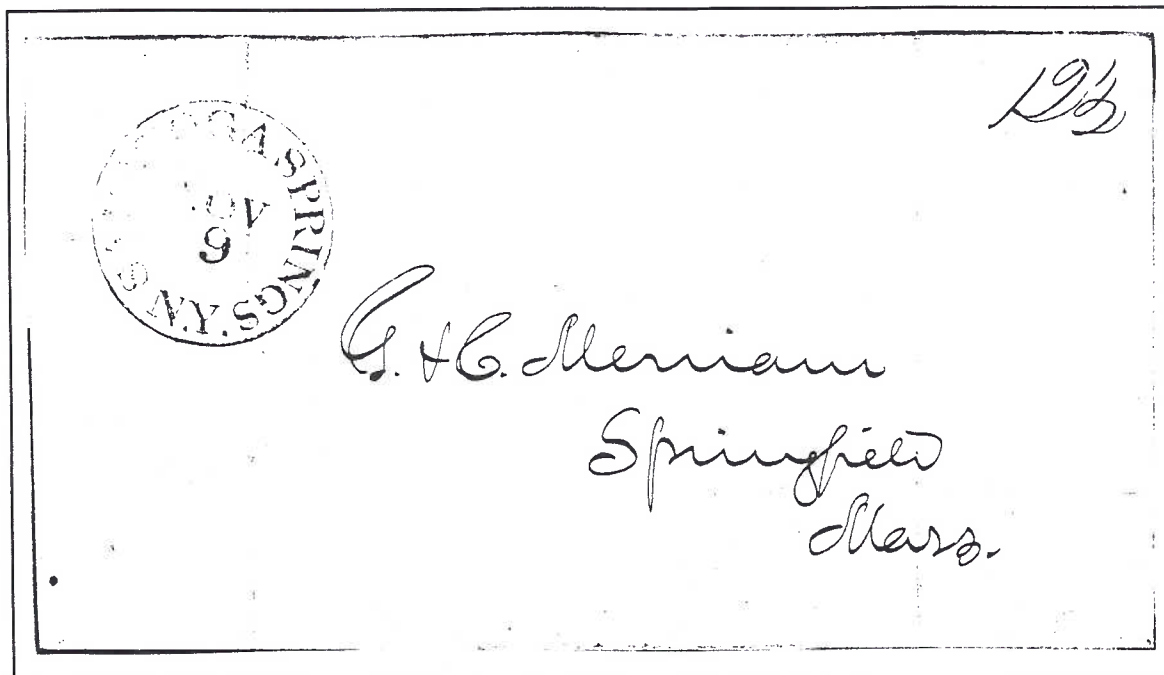 12½
SARATOGA SPRINGS. N.Y.
NOV
9
G. & C. Merriam
Springfield
Mass.